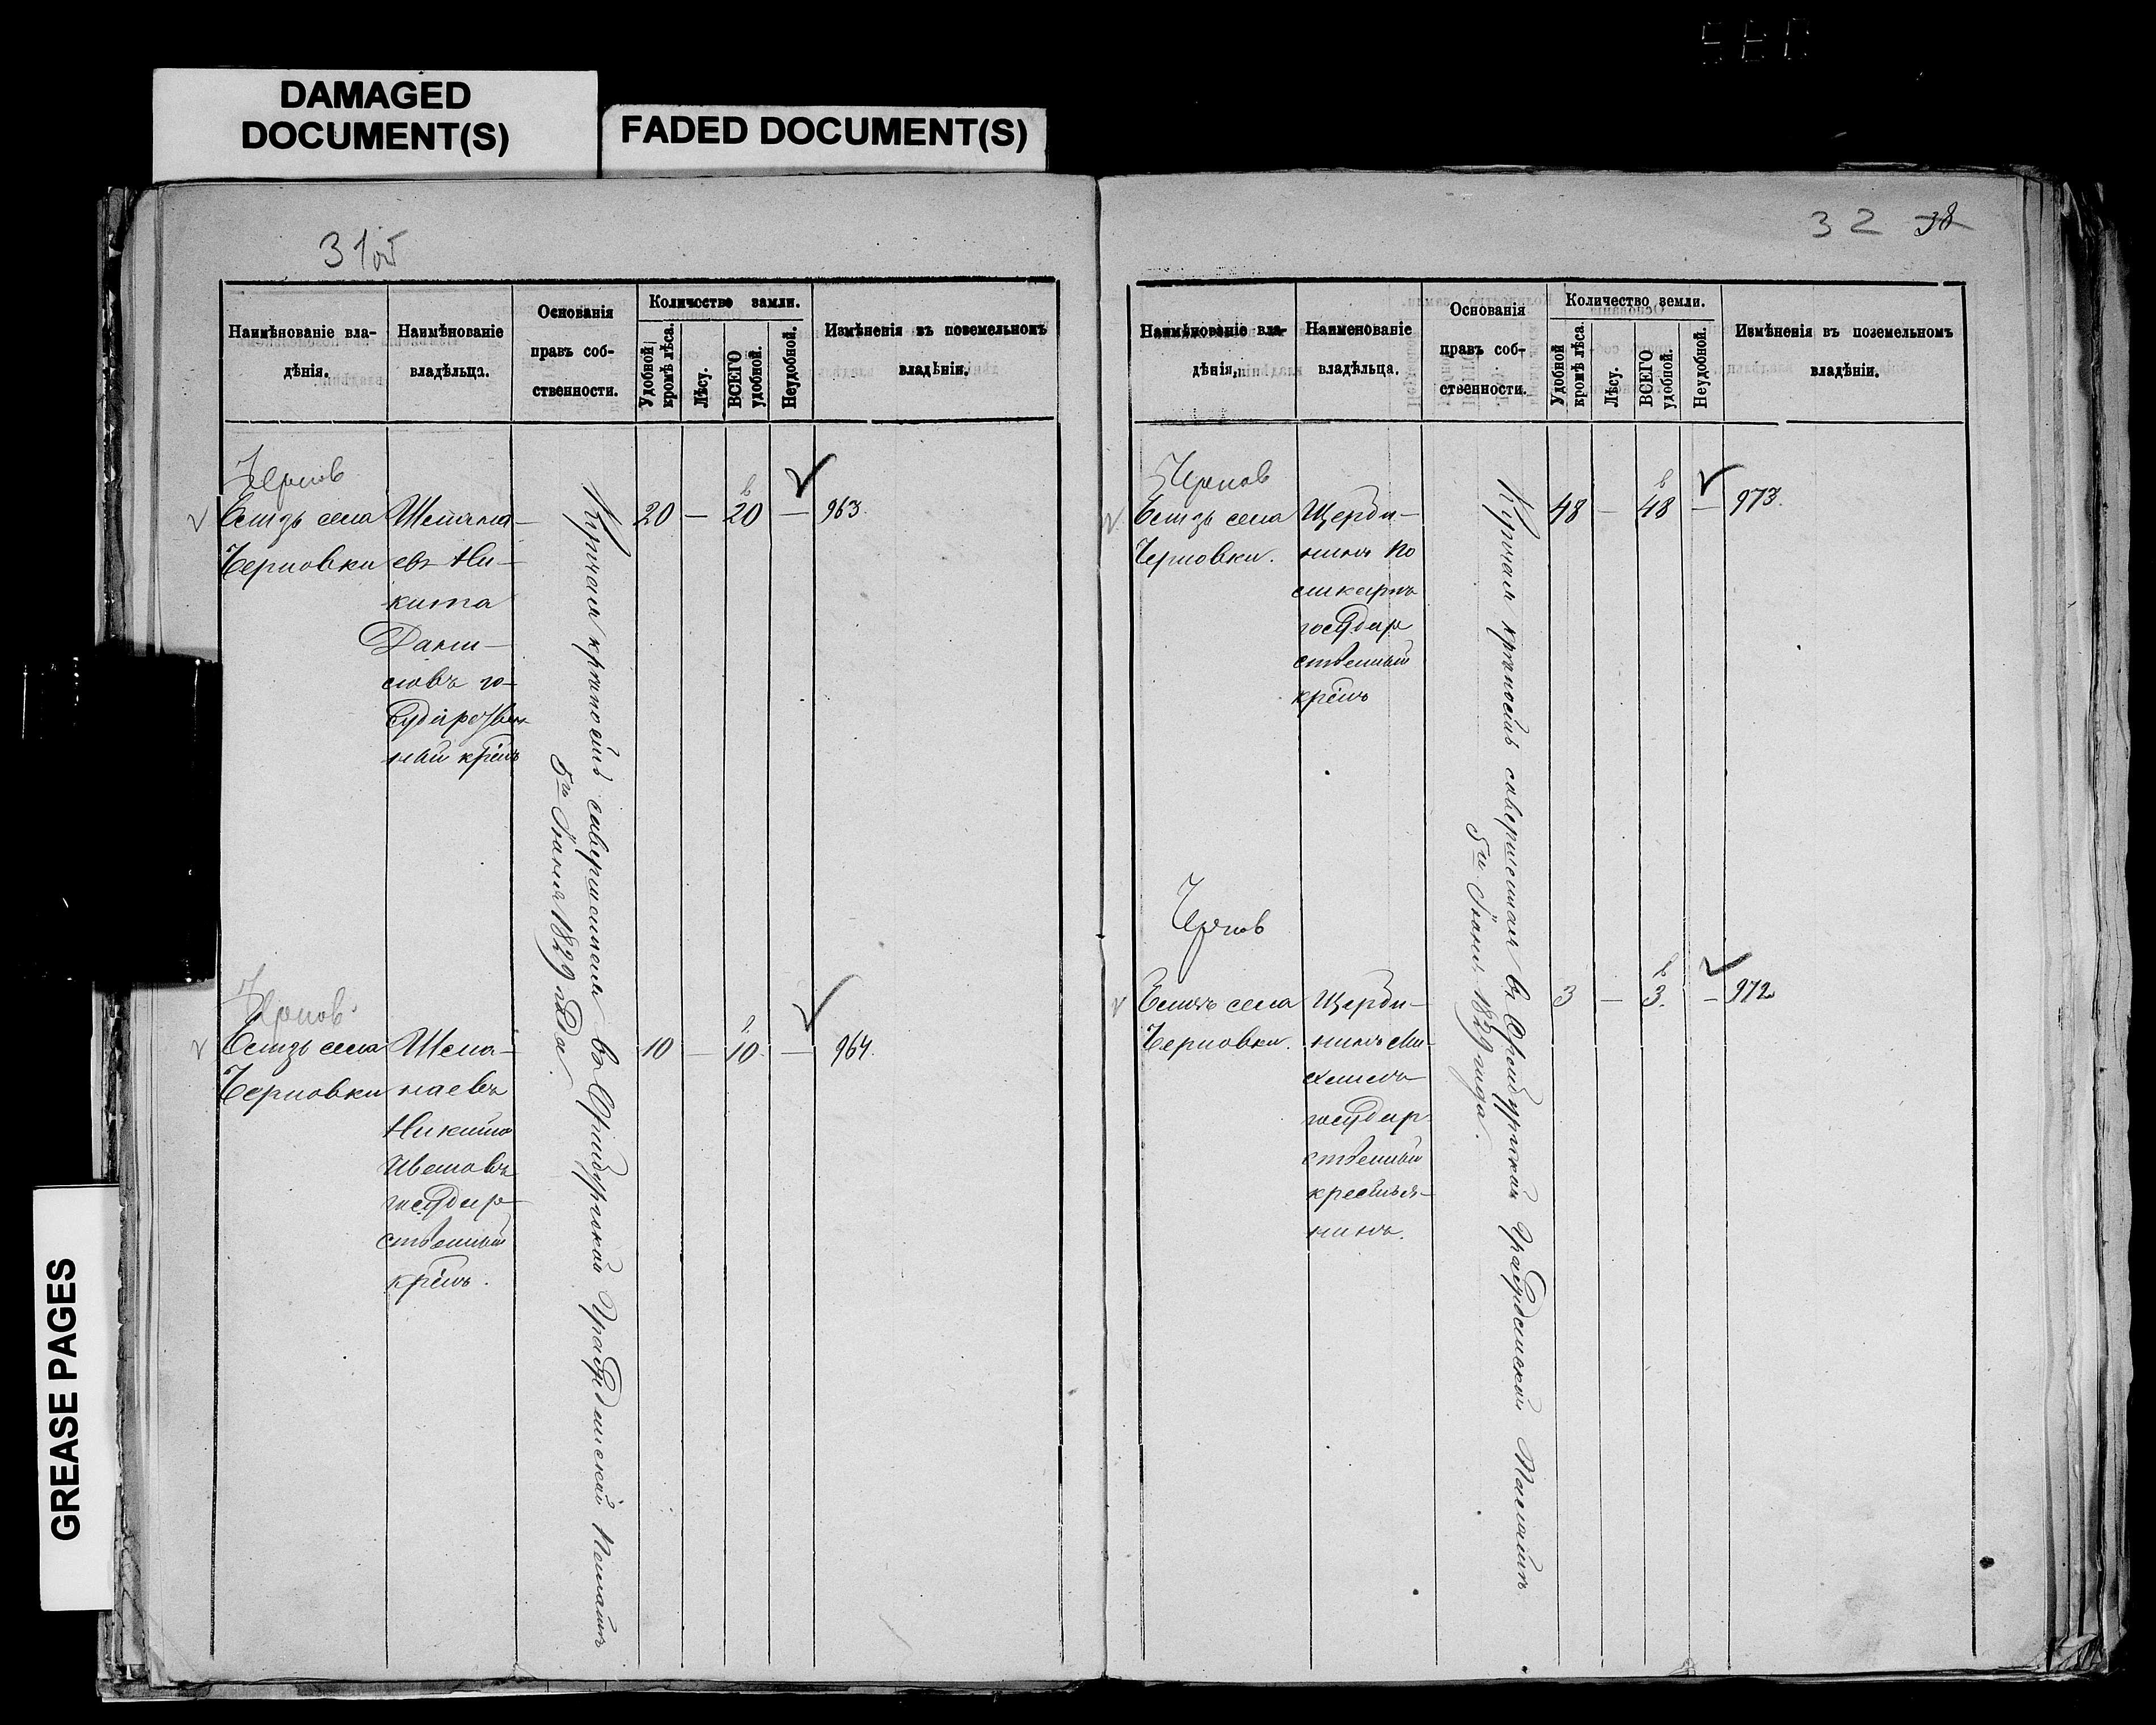 560
DAMAGED
DOCUMENT(S)
FADED DOCUMENT(S)
GREASE PAGES
31об
Наимѣнованіе вла-
дѣнія.
Наимѣнованіе
владѣльца.
Основанія
правъ соб-
ственности.
Количество земли.
Удобной
кромѣ лѣса.
Лѣсу.
ВСЕГО
удобной.
Неудобной.
Измѣненія въ поземельномъ
владѣніи.
Чернов
села
Черновки
евъ Ни-
кита
Дани-
ловъ го-
сударствен-
ный кр-инъ
Купчая крѣпость совершенная въ Оренбургской Гражданской Палатѣ
5го 1829 года.
20 — 20 — 963.
Чернов
села
Черновки
Шепа-
наевъ
Никита
Ивановъ
государ-
ственный
кр-инъ.
10 — 10 — 964.
32 38
Наимѣнованіе вла-
дѣнія.
Наименованіе
владѣльца.
Основанія
правъ соб-
ственности.
Количество земли.
Удобной
кромѣ лѣса.
Лѣсу.
ВСЕГО
удобной.
Неудобной.
Измѣненія въ поземельномъ
владѣніи.
Чернов
села
Черновки.
Щерби-
нинъ По
ликарпъ
государ
ственный
кр-инъ
Купчая крѣпость совершенная въ Оренбургской Гражданской Палатѣ
5го 1829 года.
48 — 48 — 973.
Чернов
села
Черновки.
Щерби-
нинъ Ми-
хаилъ
государ-
ственный
крестья-
нинъ.
3 — 3. — 972